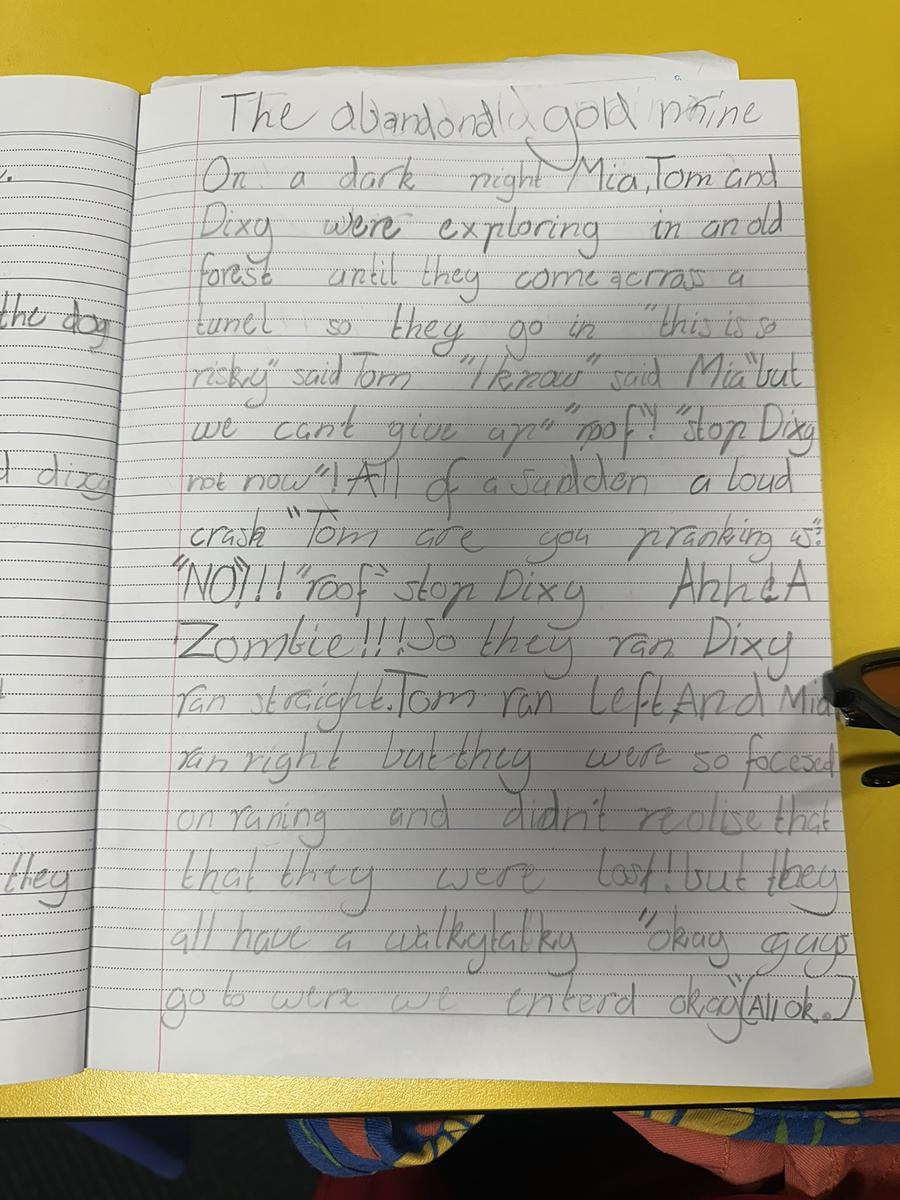 the dog
d dixy
they
The abandond gold mine
On a dark night Mia, Tom and
Dixy were exploring in an old
forest until they come across a
tunel so they go in "this is so
risky" said Tom "I know" said Mia "but
we can't give up" "roof"! "stop Dixy
not now"! All of a sudden a loud
crash "Tom are you pranking us"?
"NO"!!! "roof" stop Dixy Ahh A
Zombie!!! So they ran Dixy
ran straight. Tom ran left, And Mia
ran right but they were so focesed
on runing and didn't realise that
that they were lost! but they
all have a walkytalky "okay guys
go to were we enterd okay" (All ok.)